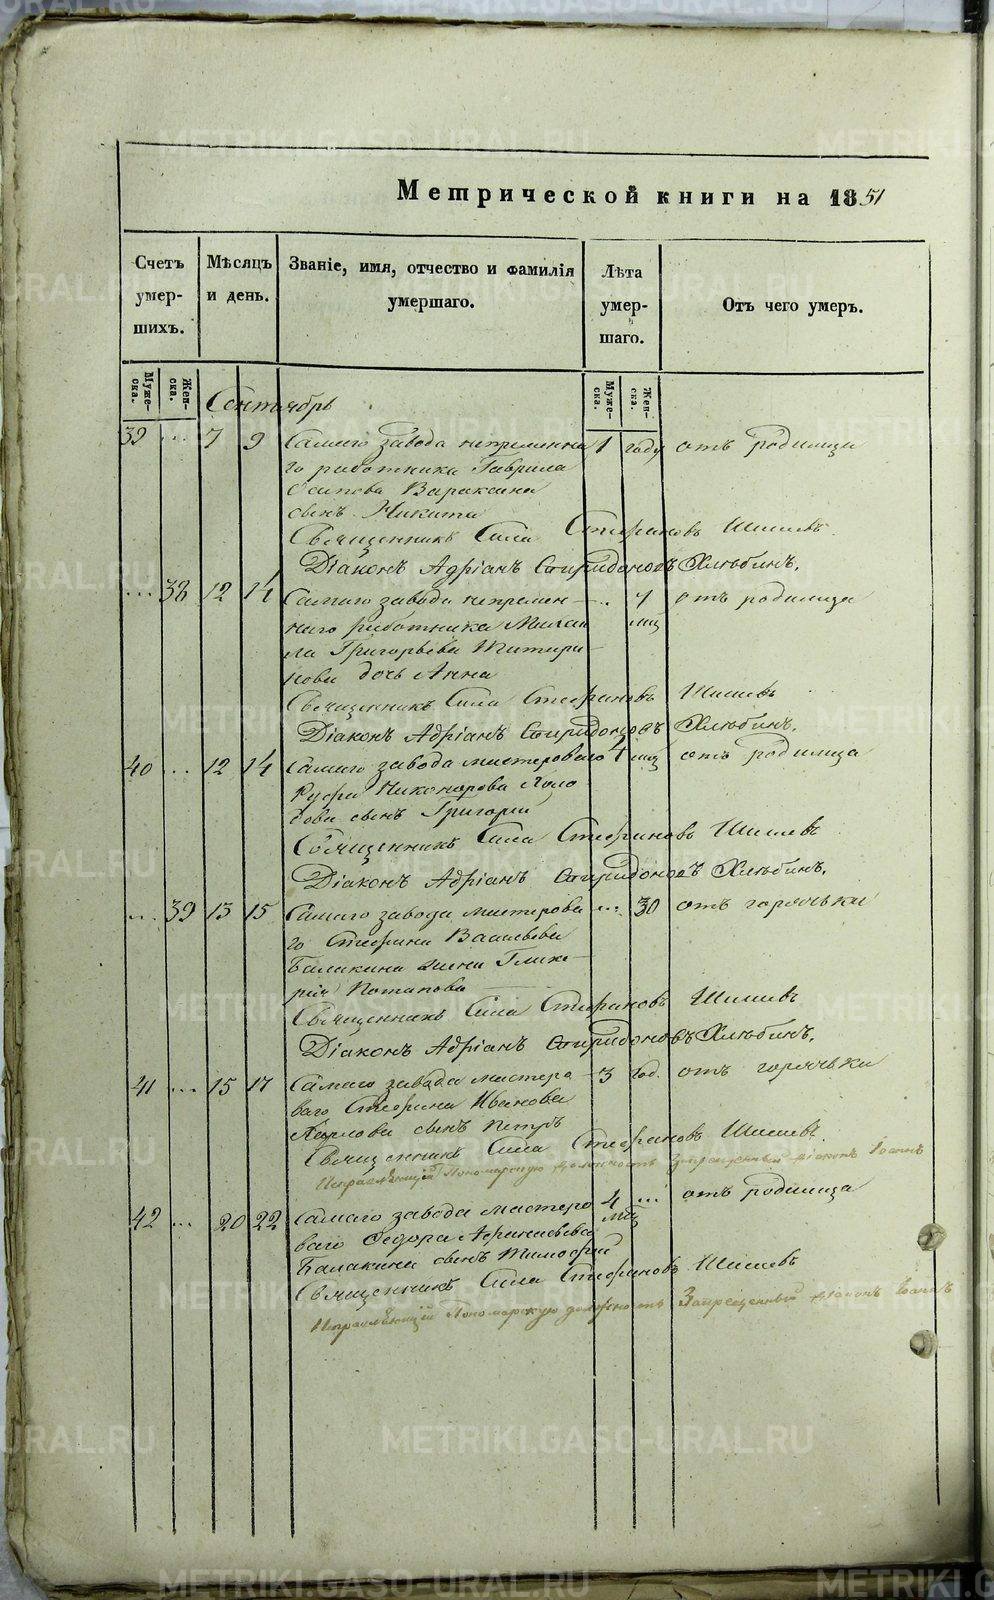 Метрической книги на 1851
Счетъ умер-шихъ.
Мѣсяцъ и день.
Званіе, имя, отчество и фамилія умершаго.
Лѣта умер-шаго.
Отъ чего умеръ.
Муже-ска.
Жен-ска.
Муже-ска.
Жен-ска.
Сентябрь
39 ... 7 9 Самаго завода непременна 1 году отъ родимца
го работника Гаврила
Осипова Вараксина
сынъ Никита
Священникъ Сила Стефановъ Шишевъ
Діаконъ Адріанъ Спиридоновъ Хлюбинъ.
... 38 12 14 Самаго завода непремен- ... 7 отъ родимца
наго работника Михаи мц
ла Григорьева Титири
нова дочь Анна
Священникъ Сила Стефановъ Шишевъ
Діаконъ Адріанъ Спиридоновъ Хлюбинъ.
40 ... 12 14 Самаго завода мастероваго 4 мц отъ родимца
Руфа Никонорова Холо
дова сынъ Григорій
Священникъ Сила Стефановъ Шишевъ
Діаконъ Адріанъ Спиридоновъ Хлюбинъ.
... 39 13 15 Самаго завода мастерова ... 30 отъ горячьки
го Стефана Васильева
Балакина жена Глике-
рія Потапова
Священникъ Сила Стефановъ Шишевъ
Діаконъ Адріанъ Спиридоновъ Хлюбинъ.
41 ... 15 17 Самаго завода мастеро 3 год. отъ горячьки
ваго Стефана Иванова
Карпова сынъ Петръ
Священникъ Сила Стефановъ Шишевъ.
Исправляющій Пономарскую должность Запрещенный діаконъ Іоаннъ
42 ... 20 22 Самаго завода мастеро 4 ... отъ родимца
ваго Федора Афанасьева мц
Балакина сынъ Тимофей
Священникъ Сила Стефановъ Шишевъ
Исправляющій Пономарскую должность Запрещенный діаконъ Іоаннъ
METRIKI.GASO-URAL.RU